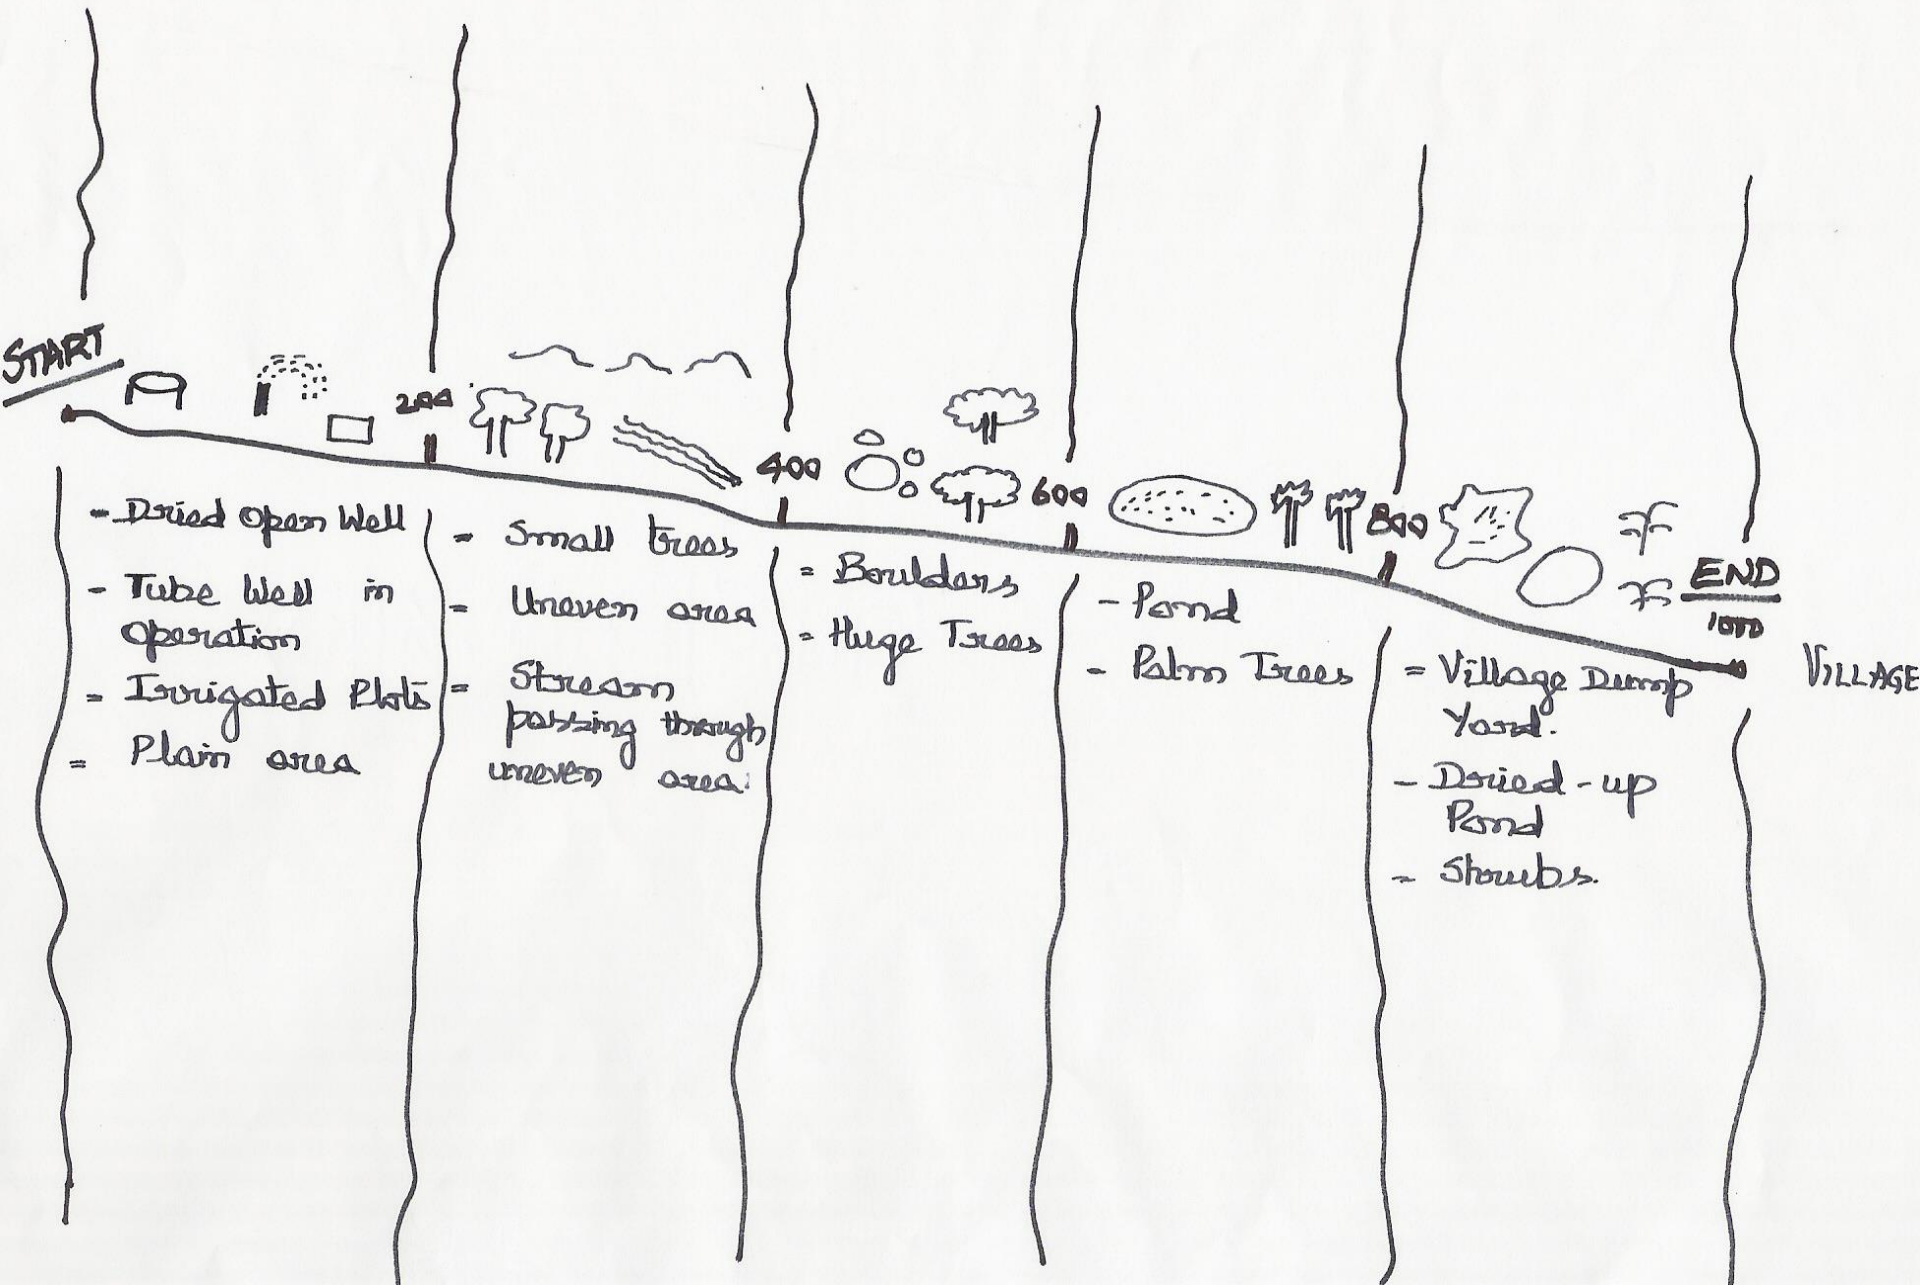 START
200
400
600
800
END
1000
VILLAGE
- Dried Open Well
- Tube Well in
operation
= Irrigated Plots
= Plain area
= Small trees
= Uneven area
= Stream
passing through
uneven area.
= Boulders
= Huge Trees
- Pond
- Palm Trees
= Village Dump
Yard.
- Dried-up
Pond
= Shrubs.